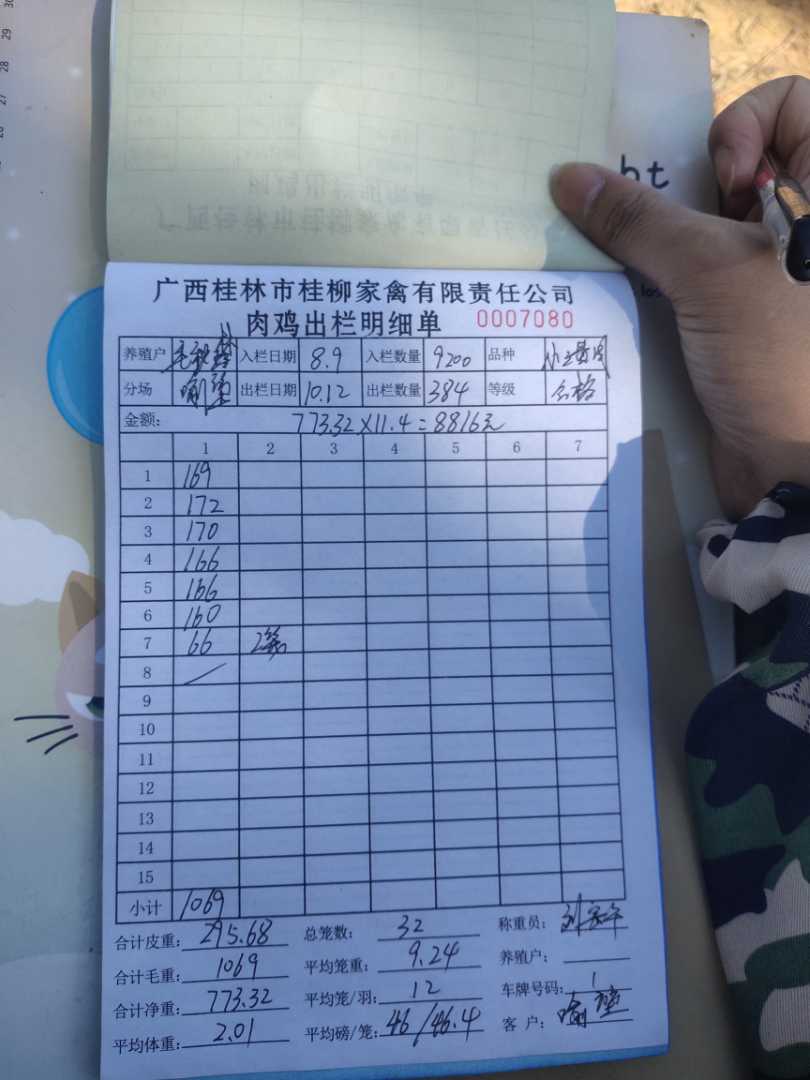 30
29
28
27
26
ht
广西桂林市桂柳家禽有限责任公司
肉鸡出栏明细单 0007080
养殖户 入栏日期 8.9 入栏数量 9200 品种
分场 出栏日期 10.12 出栏数量 384 等级 合格
金额: 773.32×11.4=8816元
1 2 3 4 5 6 7
1 169
2 172
3 170
4 166
5 166
6 160
7 66 2笼
8
9
10
11
12
13
14
15
小计 1069
合计皮重: 295.68 总笼数: 32 称重员:
合计毛重: 1069 平均笼重: 9.24 养殖户:
合计净重: 773.32 平均笼/羽: 12 车牌号码: 1
平均体重: 2.01 平均磅/笼: 46/46.4 客户: